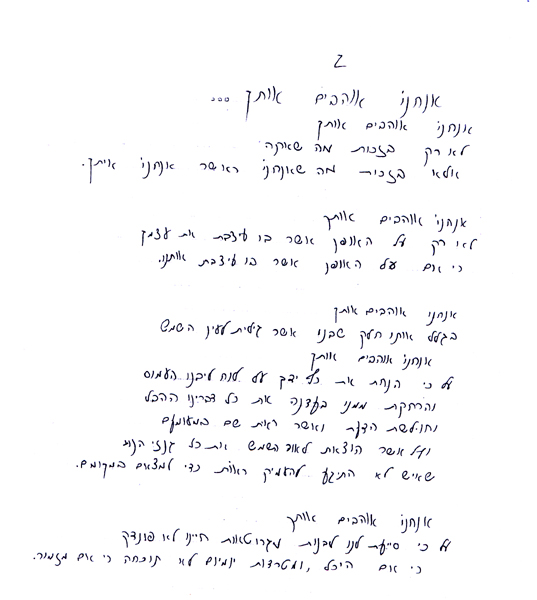 2
אנחנו אוהבים אותך ...
אנחנו אוהבים אותך
לא רק בזכות מה שאתה
אלא בזכות מה שאנחנו כאשר אנחנו איתך.
אנחנו אוהבים אותך
לא רק על האופן אשר בו עיצבת את עצמך
כי אם על האופן אשר בו עיצבת אותנו.
אנחנו אוהבים אותך
בגלל אותו חלק שבנו אשר גילית לעין השמש
אנחנו אוהבים אותך
על כי הנחת את כף ידך על לוח ליבנו העמוס
והרחקת ממנו בעדנה את כל דברינו ההבל
וחולשת הדעת ואשר ראית שם במעומעם
ועל אשר הוצאת לאור השמש את כל גנזי הנוי
שאיש לא התיגע להעמיק ראות כדי למצאם במקומם.
אנחנו אוהבים אותך
על כי סייעת לנו לבנות מגרוטאות חיינו לא פונדק
כי אם היכל, ומטרדות יומיום לא תוכחה כי אם מזמור.